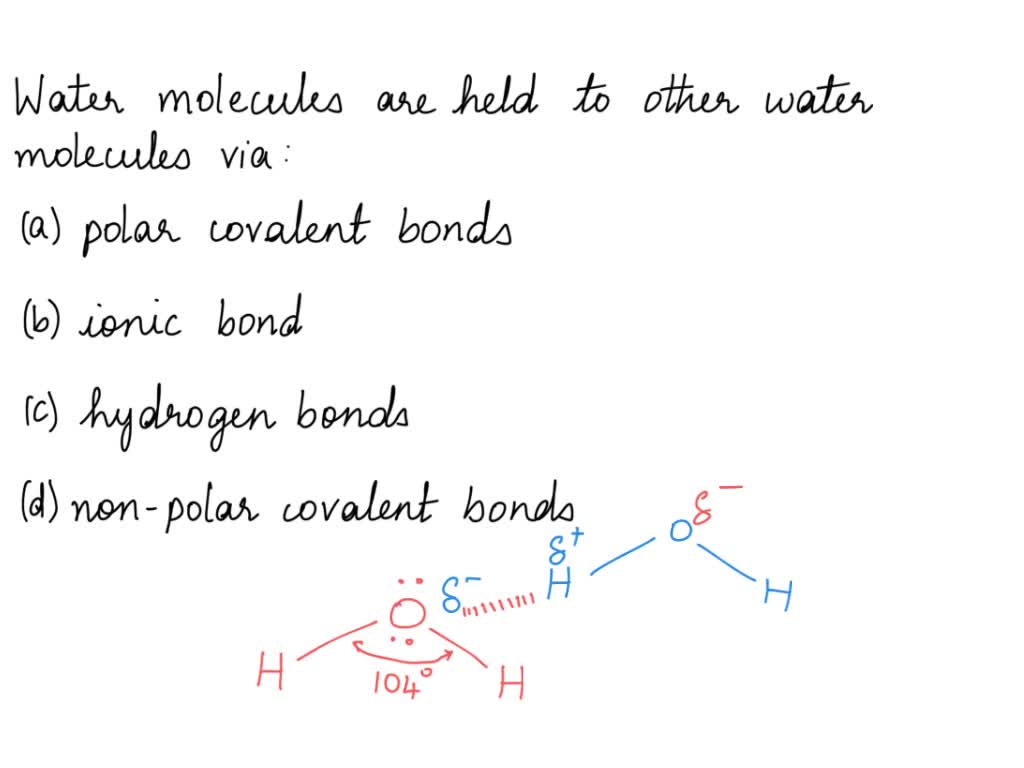 Water molecules are held to other water
molecules via:
(a) polar covalent bonds
(b) ionic bond
(c) hydrogen bonds
(d) non-polar covalent bonds
δ⁻
δ⁺ O
δ⁻ H H
O
H 104° H